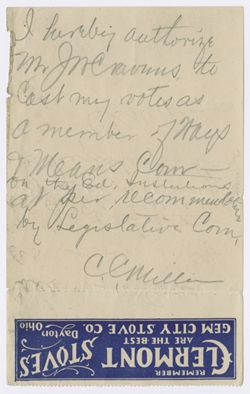 I hereby authorize
Mr J W Cravens to
cast my votes as
a member of Ways
& Means Com—
on the Ed. Institutions
as per recommendation
by Legislative Com,
C C Miller
REMEMBER
CLERMONT
STOVES
ARE THE BEST
GEM CITY STOVE CO.
Dayton
Ohio